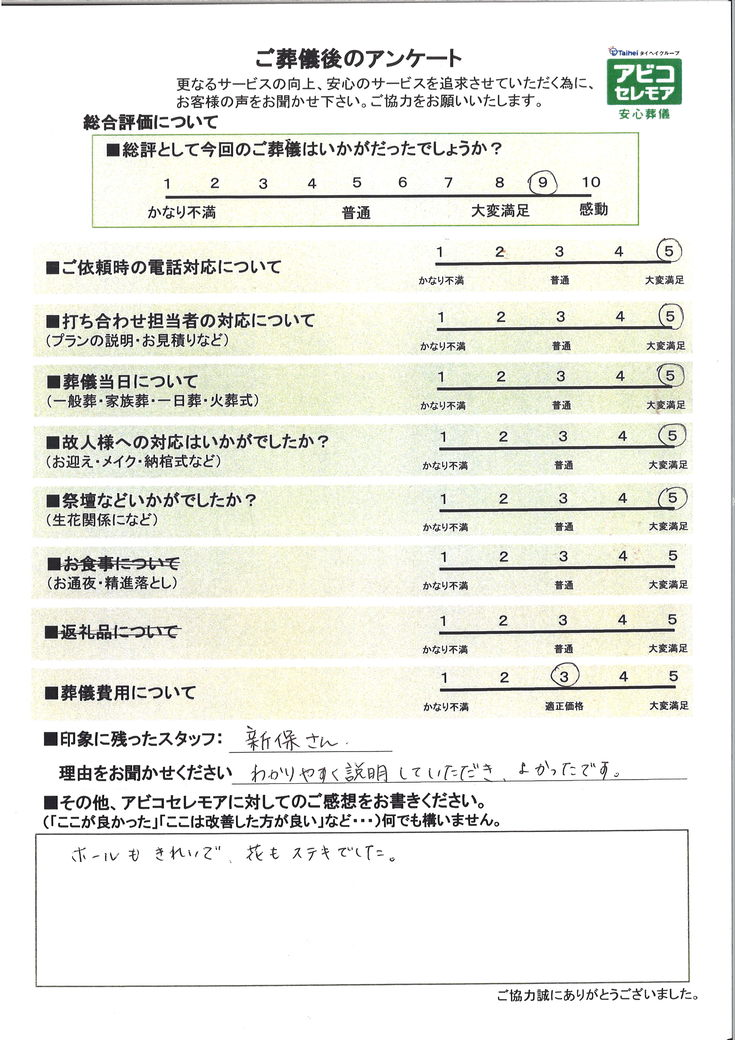 ご葬儀後のアンケート
Taihei タイヘイグループ
アビコ
セレモア
安心葬儀
更なるサービスの向上、安心のサービスを追求させていただく為に、
お客様の声をお聞かせ下さい。ご協力をお願いいたします。
総合評価について
■総評として今回のご葬儀はいかがだったでしょうか？
1 2 3 4 5 6 7 8 9 10
かなり不満 普通 大変満足 感動
■ご依頼時の電話対応について
1 2 3 4 5
かなり不満 普通 大変満足
■打ち合わせ担当者の対応について
(プランの説明・お見積りなど)
1 2 3 4 5
かなり不満 普通 大変満足
■葬儀当日について
(一般葬・家族葬・一日葬・火葬式)
1 2 3 4 5
かなり不満 普通 大変満足
■故人様への対応はいかがでしたか？
(お迎え・メイク・納棺式など)
1 2 3 4 5
かなり不満 普通 大変満足
■祭壇などいかがでしたか？
(生花関係になど)
1 2 3 4 5
かなり不満 普通 大変満足
■お食事について
(お通夜・精進落とし)
1 2 3 4 5
かなり不満 普通 大変満足
■返礼品について
1 2 3 4 5
かなり不満 普通 大変満足
■葬儀費用について
1 2 3 4 5
かなり不満 適正価格 大変満足
■印象に残ったスタッフ： 新保さん.
理由をお聞かせください わかりやすく説明していただき、よかったです。
■その他、アビコセレモアに対してのご感想をお書きください。
(「ここが良かった」「ここは改善した方が良い」など・・・)何でも構いません。
ホールもきれいで、花もステキでした。
ご協力誠にありがとうございました。